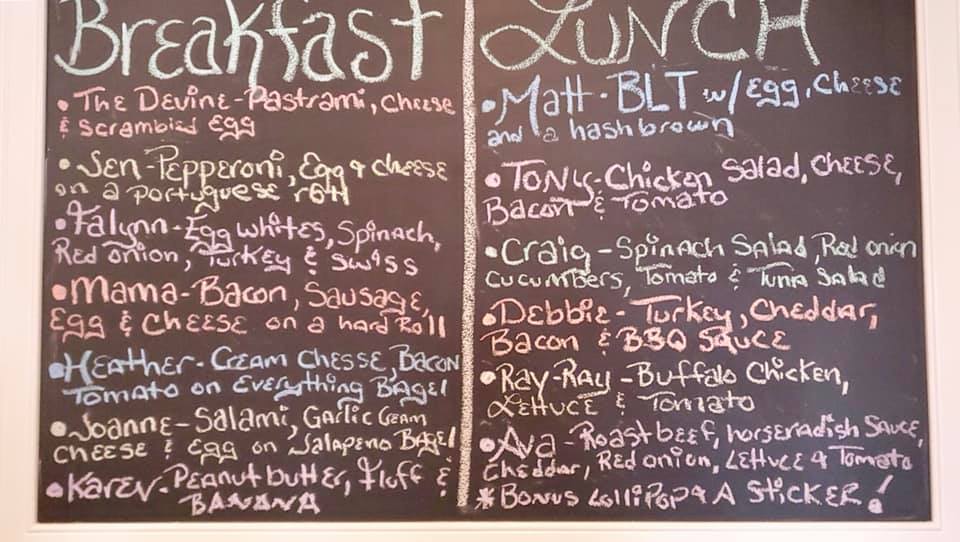 Breakfast
• The Devine - Pastrami, Cheese
& Scrambled Egg
• Jen - Pepperoni, Egg & Cheese
on a Portuguese roll
• Falynn - Egg whites, Spinach,
Red onion, Turkey & Swiss
• Mama - Bacon, Sausage,
Egg & Cheese on a hard Roll
• Heather - Cream Chesse, Bacon
Tomato on Everything Bagel
• Joanne - Salami, Garlic Cream
cheese & Egg on Jalapeno Bagel
• Karen - Peanut butter, fluff &
BANANA
LUNCH
• Matt - BLT w/ Egg, Cheese
and a hashbrown
• Tony - Chicken Salad, Cheese,
Bacon & Tomato
• Craig - Spinach Salad, Red onion
cucumbers, Tomato & Tuna Salad
• Debbie - Turkey, Cheddar,
Bacon & BBQ Sauce
• Ray-Ray - Buffalo Chicken,
Lettuce & Tomato
• Ava - Roast beef, horseradish Sauce,
cheddar, Red onion, Lettuce & Tomato
* Bonus Lollipop & A Sticker!